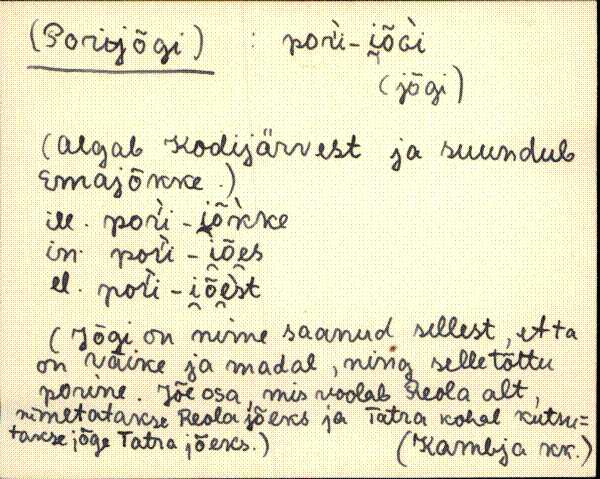 (Porijõgi) : porì̬-i̯õGi
(jõgi)
(Algab Kodijärvest ja suundub
Emajõkke.)
ill. porì̬-i̯õ̀kke
in. porì̬-i̯õe̯s
el. porì̬-i̯õe̯st
(Jõgi on nime saanud sellest, etta
on väike ja madal, ning selletõttu
porine. Jõe osa, mis voolab Reola alt,
nimetatakse Reola jõeks ja Tatra kohal kutsu=
takse jõge Tatra jõeks.) (Kambja kk.)